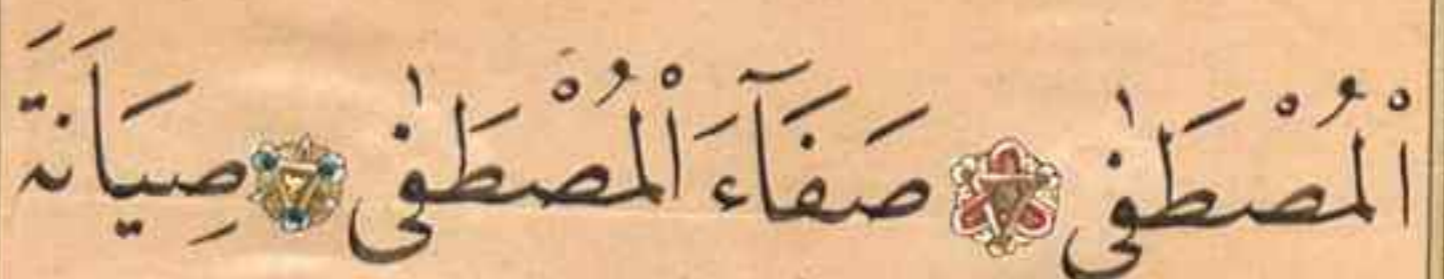 اْلمُصْطَفٰى صَفَآءَ اْلمُصْطَفٰى صِيَانَةَ